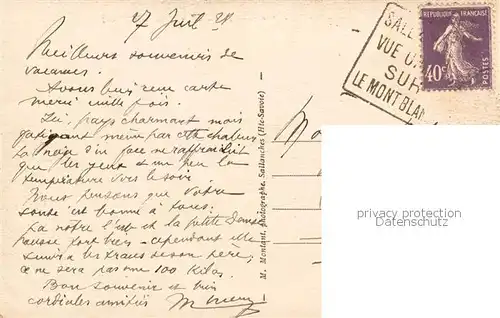 27 Juil 28
Meilleurs souvenirs de
vacances.
Avons bien reçu carte
merci mille fois.
Ici, pays charmant mais
fatigant même par cette chaleur
La neige d'en face ne rafraîchit
que les yeux et un peu la
température vers le soir
Nous pensons que votre
santé est bonne à tous.
La nôtre l'est et la petite Danse
pousse fort bien - cependant elle
suivra les traces de son père,
ce ne sera pas une 100 kilos.
Bon souvenir et bien
cordiales amitiés
M. Montant, photographe, Sallanches (Hte-Savoie)
SALL
VUE U
SUR
LE MONT BLAN
REPUBLIQUE FRANÇAISE
40c
POSTES
privacy protection
Datenschutz